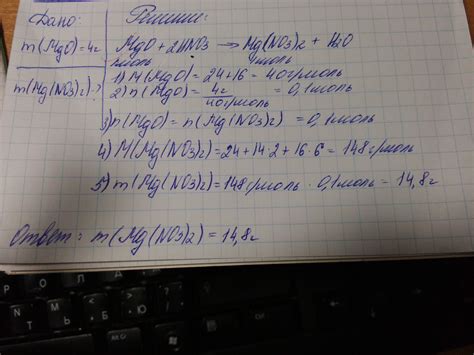 Дано:
Решение:
m(MgO)=4г
m(Mg(NO3)2)-?
MgO + 2HNO3 → Mg(NO3)2 + H2O
1моль 1моль
1) M(MgO) = 24+16 = 40г/моль
2) n(MgO) = 4г/40г/моль = 0,1моль
3) n(MgO) = n(Mg(NO3)2) = 0,1моль
4) M(Mg(NO3)2) = 24+14·2+16·6 = 148г/моль
5) m(Mg(NO3)2) = 148г/моль · 0,1моль = 14,8г
Ответ: m(Mg(NO3)2) = 14,8г